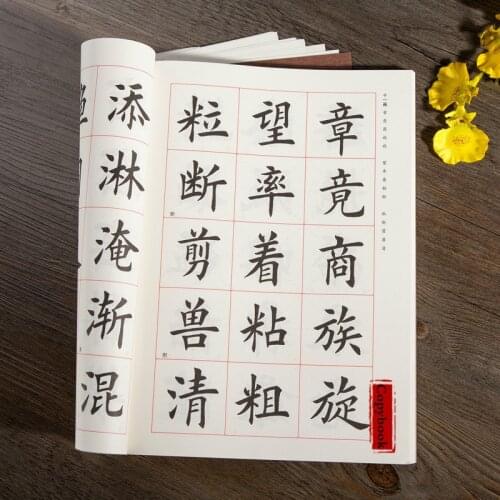 章竟商族旋
望率着粘粗
粒断剪兽清
添淋淹渐混
Copybook